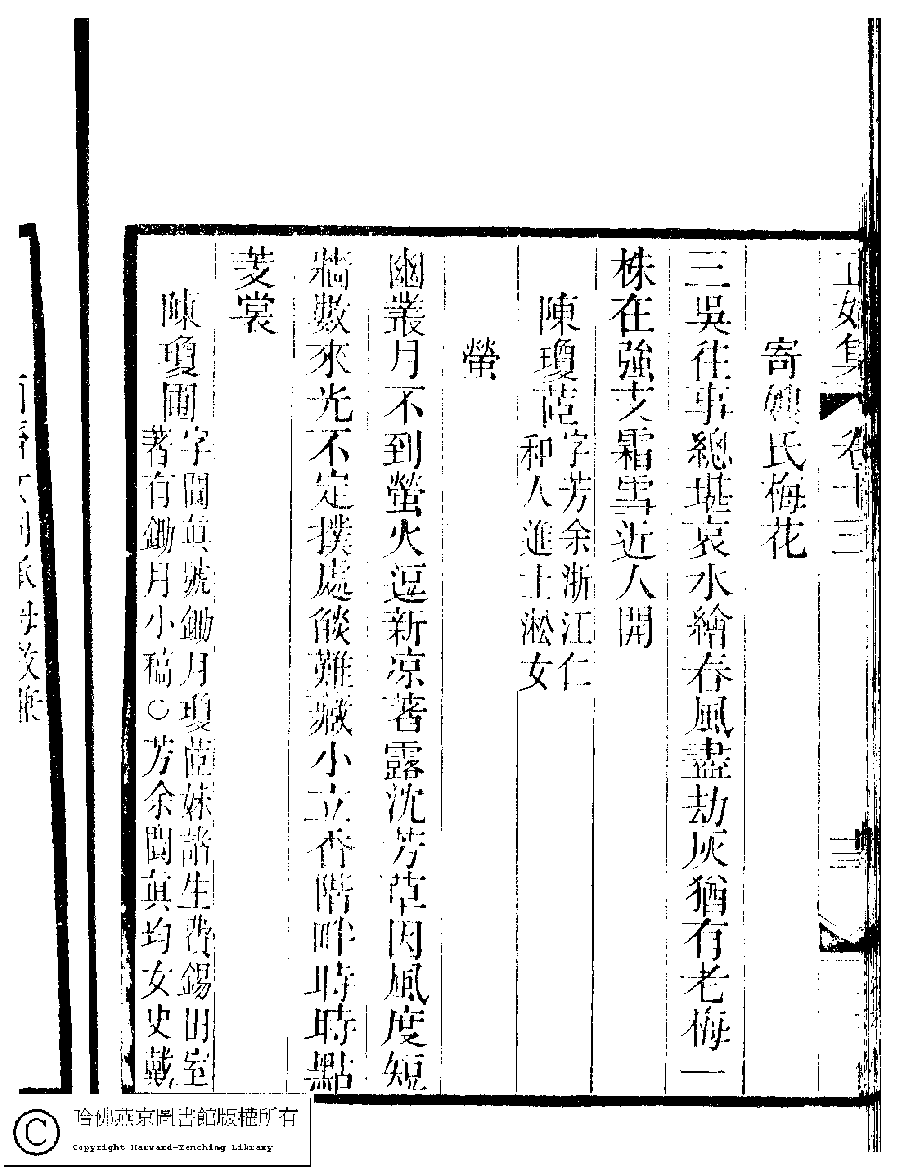 正始集 卷十三 三
寄氏梅花
三吳往事總堪哀水繪春風盡劫灰猶有老梅一
株在強支霜雪近人開
陳瓊茝字芳余浙江仁
和人進士淞女
螢
幽叢月不到螢火逗新凉著露沈芳草因風度短
牆數來光不定撲處燄難藏小立香階畔時時點
芰裳
陳瓊圃字閬眞號鋤月瓊茝妹諸生費錫田室
著有鋤月小稿○芳余閬眞均女史戴
母教兼
哈佛燕京圖書館版權所有
Copyright Harvard-Yenching Library